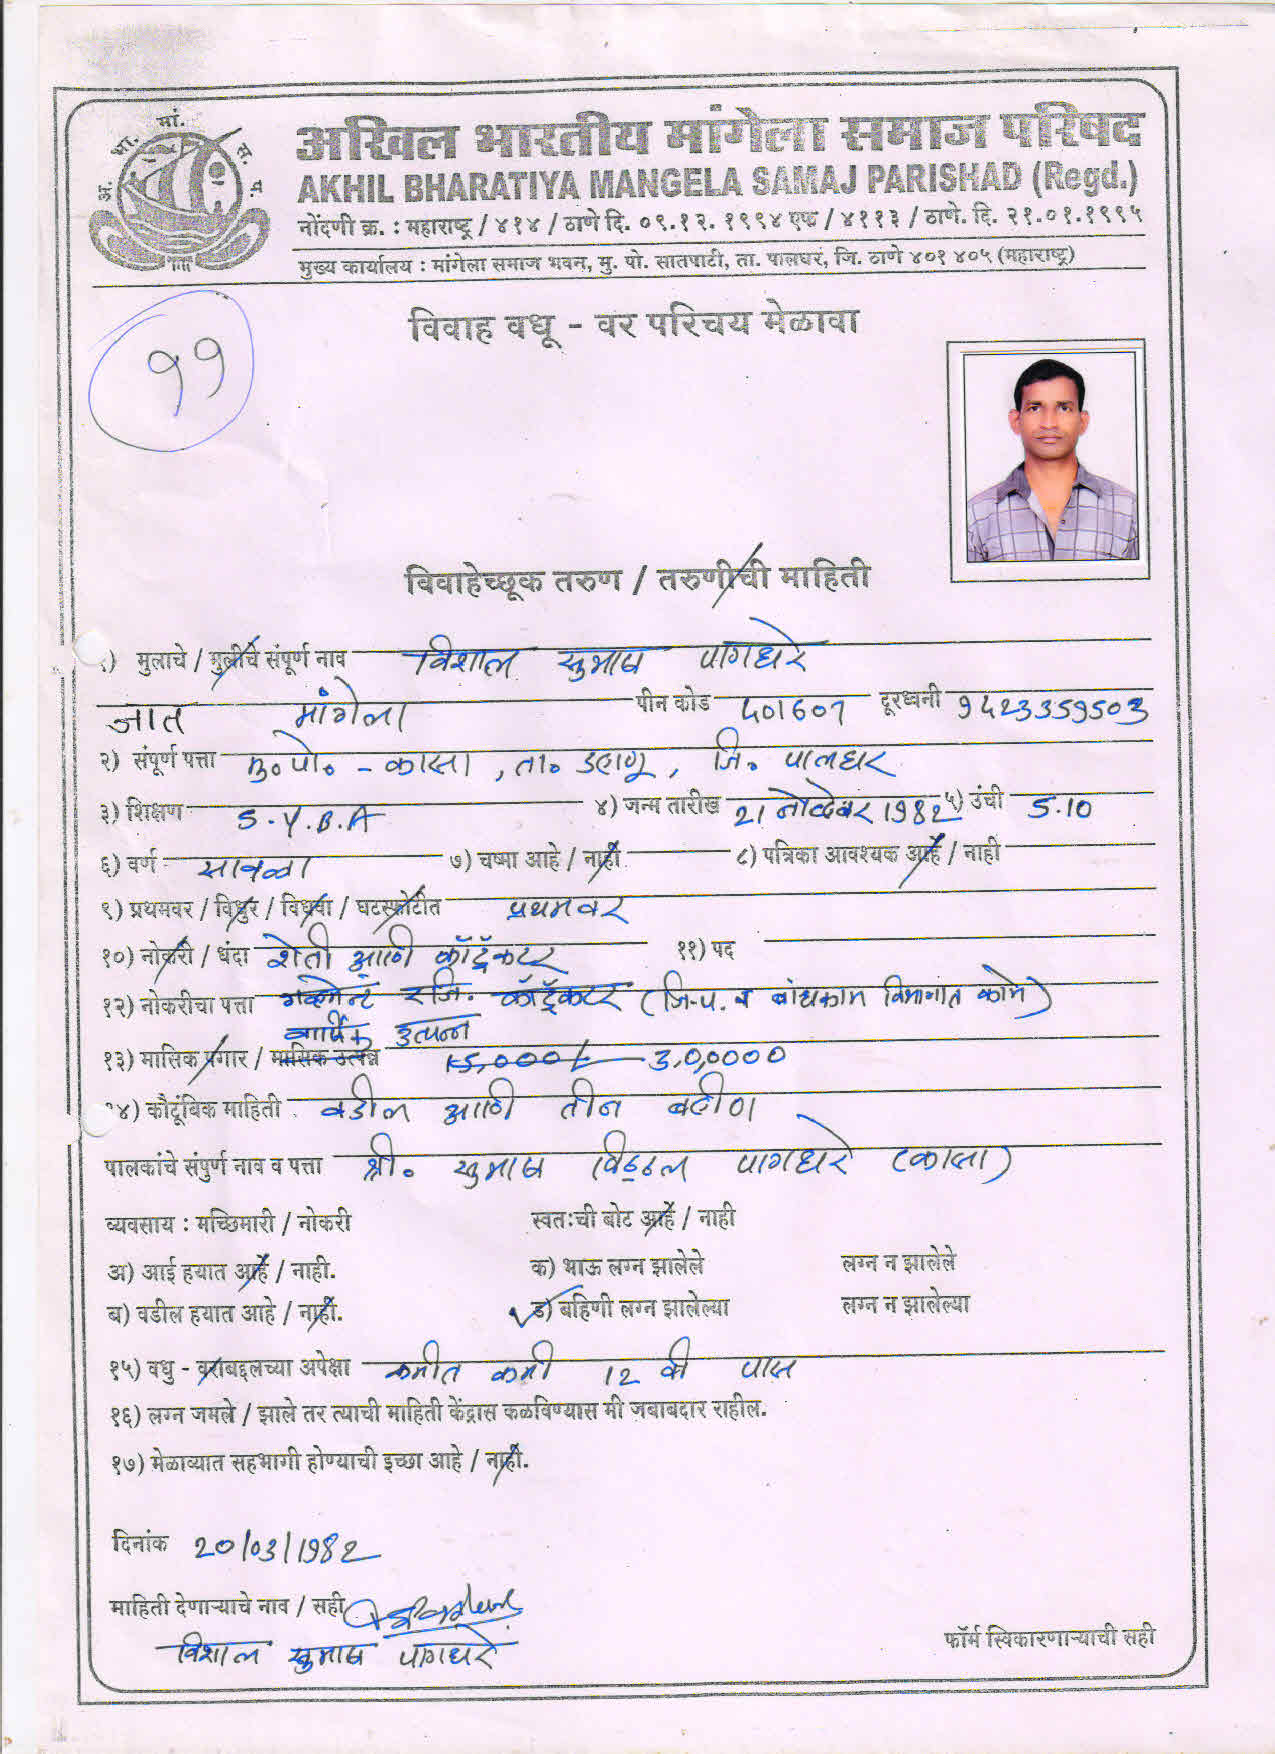 अ. भा. मां. स. प.
अखिल भारतीय मांगेला समाज परिषद
AKHIL BHARATIYA MANGELA SAMAJ PARISHAD (Regd.)
नोंदणी क्र. : महाराष्ट्र / ४१४ / ठाणे दि. ०९.१२. १९९४ एफ / ४११३ / ठाणे. दि. २१.०१.१९९५
मुख्य कार्यालय : मांगेला समाज भवन, मु. पो. सातपाटी, ता. पालघर, जि. ठाणे ४०१ ४०५ (महाराष्ट्र)
विवाह वधू - वर परिचय मेळावा
११
विवाहेच्छूक तरुण / तरुणीची माहिती
१) मुलाचे / मुलीचे संपूर्ण नाव विशाल सुभाष पागधरे
जात मांगेला पीन कोड 401607 दूरध्वनी 9423359503
२) संपूर्ण पत्ता मु. पो. - कासा, ता. डहाणू, जि. पालघर
३) शिक्षण S.Y.B.A ४) जन्म तारीख 21 नोव्हेंबर 1982 ५) उंची 5.10
६) वर्ण सावळा ७) चष्मा आहे / नाही ८) पत्रिका आवश्यक आहे / नाही
९) प्रथमवर / विधुर / विधवा / घटस्फोटीत प्रथमवर
१०) नोकरी / धंदा शेती आणि कॉट्रॅकटर ११) पद
१२) नोकरीचा पत्ता गव्हमेन्ट रजि. कॉट्रॅकटर (जि.प. व बांधकाम विभागात कामे)
वार्षिक उत्पन्न
१३) मासिक पगार / मासिक उत्पन्न 15,000/- 3,0,0000
१४) कौटूंबिक माहिती वडील आणि तीन बहीण
पालकांचे संपुर्ण नाव व पत्ता श्री. सुभाष विठ्ठल पागधरे (कासा)
व्यवसाय : मच्छिमारी / नोकरी स्वतःची बोट आहे / नाही
अ) आई हयात आहे / नाही. क) भाऊ लग्न झालेले लग्न न झालेले
ब) वडील हयात आहे / नाही. ड) बहिणी लग्न झालेल्या लग्न न झालेल्या
१५) वधु - वराबद्दलच्या अपेक्षा कमीत कमी 12 वी पास
१६) लग्न जमले / झाले तर त्याची माहिती केंद्रास कळविण्यास मी जबाबदार राहील.
१७) मेळाव्यात सहभागी होण्याची इच्छा आहे / नाही.
दिनांक 20/03/1982
माहिती देणाऱ्याचे नाव / सही
विशाल सुभाष पागधरे
फॉर्म स्विकारणाऱ्याची सही